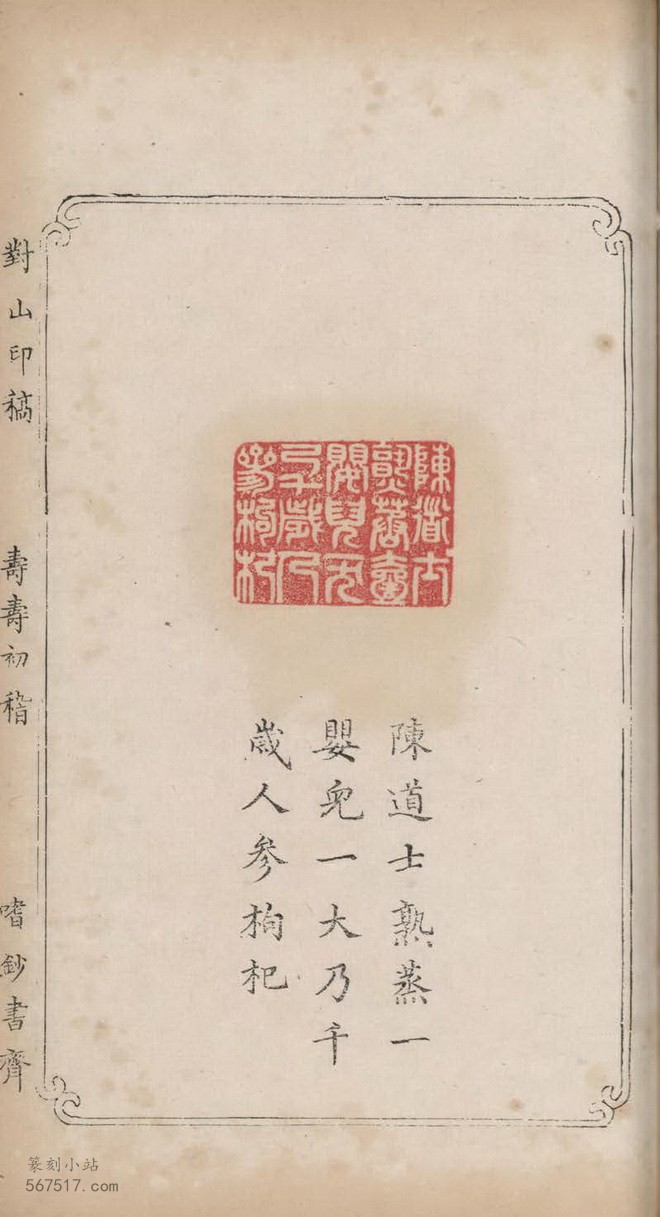 陳道士熟蒸一
嬰兒一大乃千
歲人參枸杞
對山印稿
壽壽初稽
嗜鈔書齊
篆刻小站
567517.com